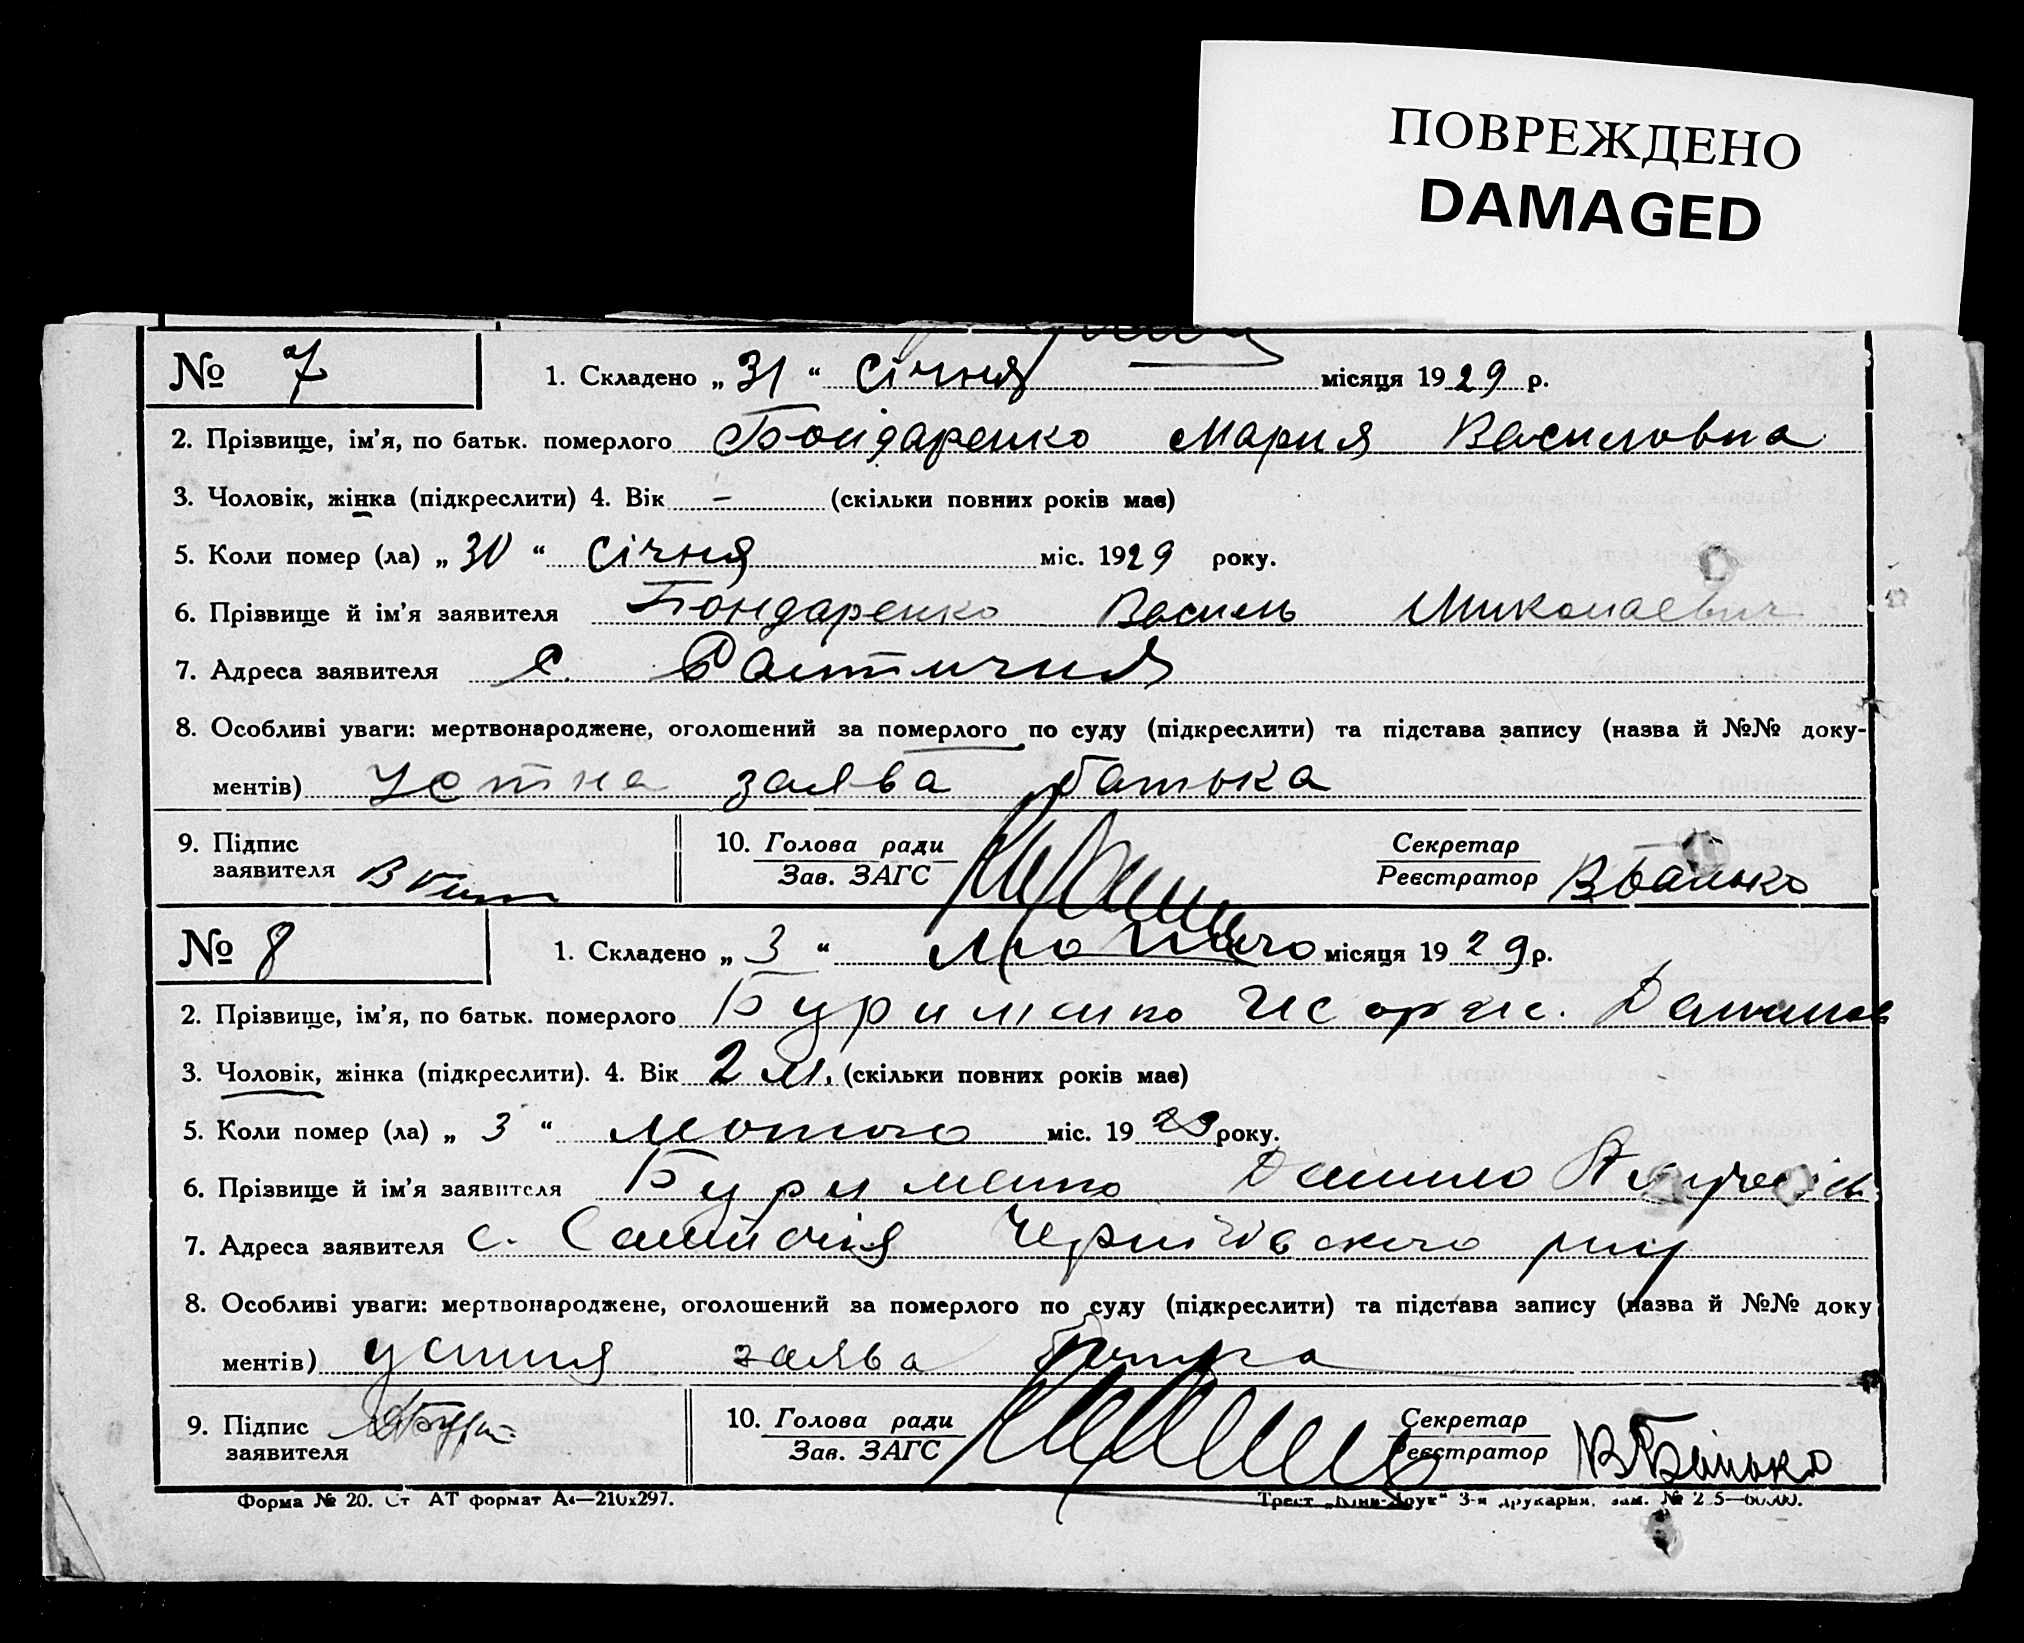 ПОВРЕЖДЕНО
DAMAGED
№ 7 1. Складено „ 31 “ січня місяця 1929 р.
2. Прізвище, ім’я, по батьк. померлого Бондаренко Мария Василовна
3. Чоловік, жінка (підкреслити) 4. Вік - (скільки повних років має)
5. Коли помер (ла) „ 30 “ січня міс. 1929 року.
6. Прізвище й ім’я заявителя Бондаренко Василь Миколаевич
7. Адреса заявителя с.
8. Особливі уваги: мертвонароджене, оголошений за померлого по суду (підкреслити) та підстава запису (назва й №№ доку-
ментів) устна заява батька
9. Підпис заявителя 10. Голова ради Секретар
Зав. ЗАГС Реєстратор В Банько
№ 8 1. Складено „ 3 “ лютого місяця 1929 р.
2. Прізвище, ім’я, по батьк. померлого Бурименко
3. Чоловік, жінка (підкреслити). 4. Вік 2 м. (скільки повних років має)
5. Коли помер (ла) „ 3 “ лютого міс. 1929 року.
6. Прізвище й ім’я заявителя Бурименко Данило
7. Адреса заявителя с.
8. Особливі уваги: мертвонароджене, оголошений за померлого по суду (підкреслити) та підстава запису (назва й №№ доку
ментів) устня заява батька
9. Підпис заявителя 10. Голова ради Секретар
Зав. ЗАГС Реєстратор В Банько
Форма № 20. Ст АТ формат А4—210х297. Трест 3-я друкарня, зам. №